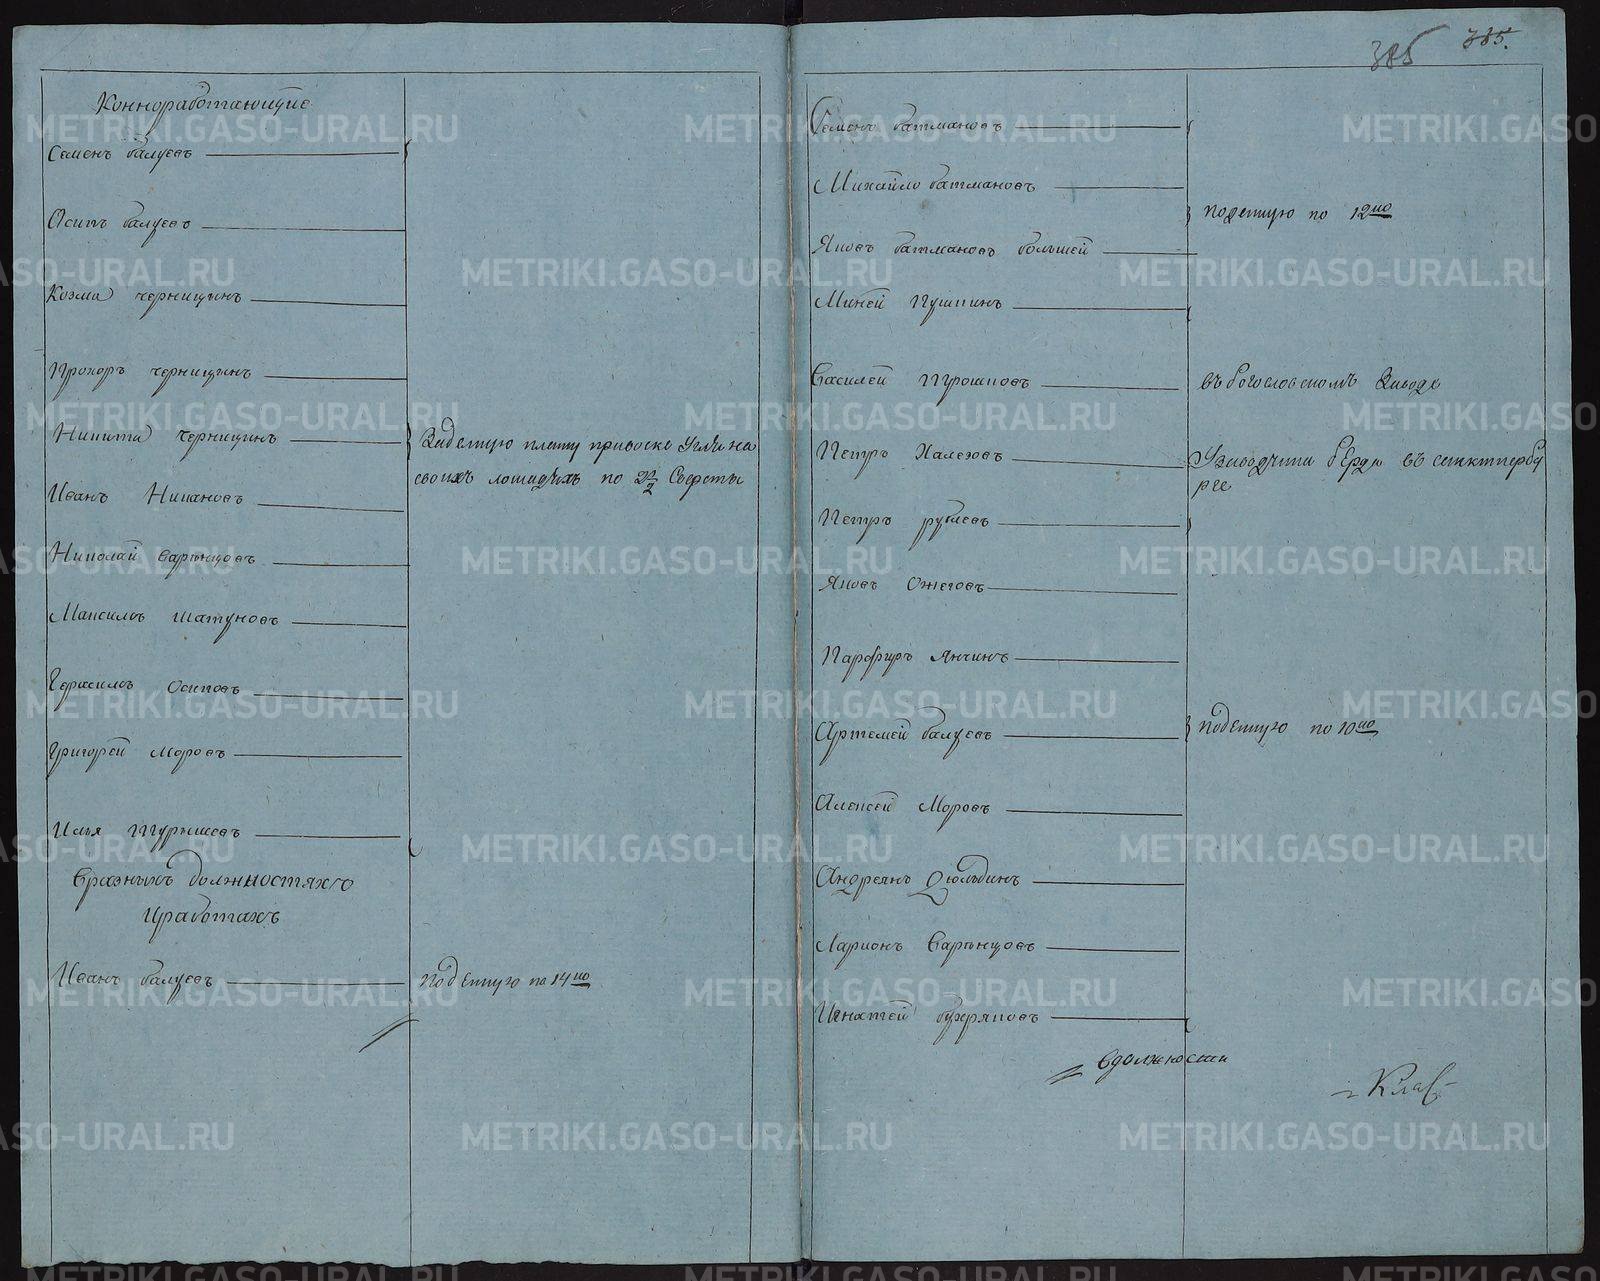 Коннработающие
Семенъ балуевъ
Осипъ балуевъ
Козма черницынъ
Прохоръ черницынъ
Никита черницынъ
Иванъ Никановъ
Николай Варѣнцовъ
Максимъ шатуновъ
Герасимъ Осиповъ
Григорей Моровъ
Илья
Задѣлную плату привоске Угля на
своихъ лошадяхъ по 2½ Сверсты
вразныхъ должностяхъ
Иработахъ
Иванъ балуевъ
поденную по 14 ко
385
385.
Семенъ батмановъ
Михайло батмановъ
Яковъ батмановъ большей
Миней Пушкинъ
поденную по 12 ко
Василей Трошковъ
въ богословскомъ Заводе
Петръ Халезовъ
Узаводчика бЕрда въ санктпербу
рге
Петръ рублевъ
Яковъ Ожеговъ
Парфиръ Янчинъ
Артемей балуевъ
Алексей Моровъ
Андреянъ Дюльдинъ
Ларионъ Варѣнцовъ
Игнатей бухряковъ
подЕнную по 10 ко
вдолжности